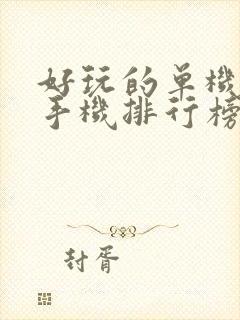 好玩的单機
手機排行榜
封胥